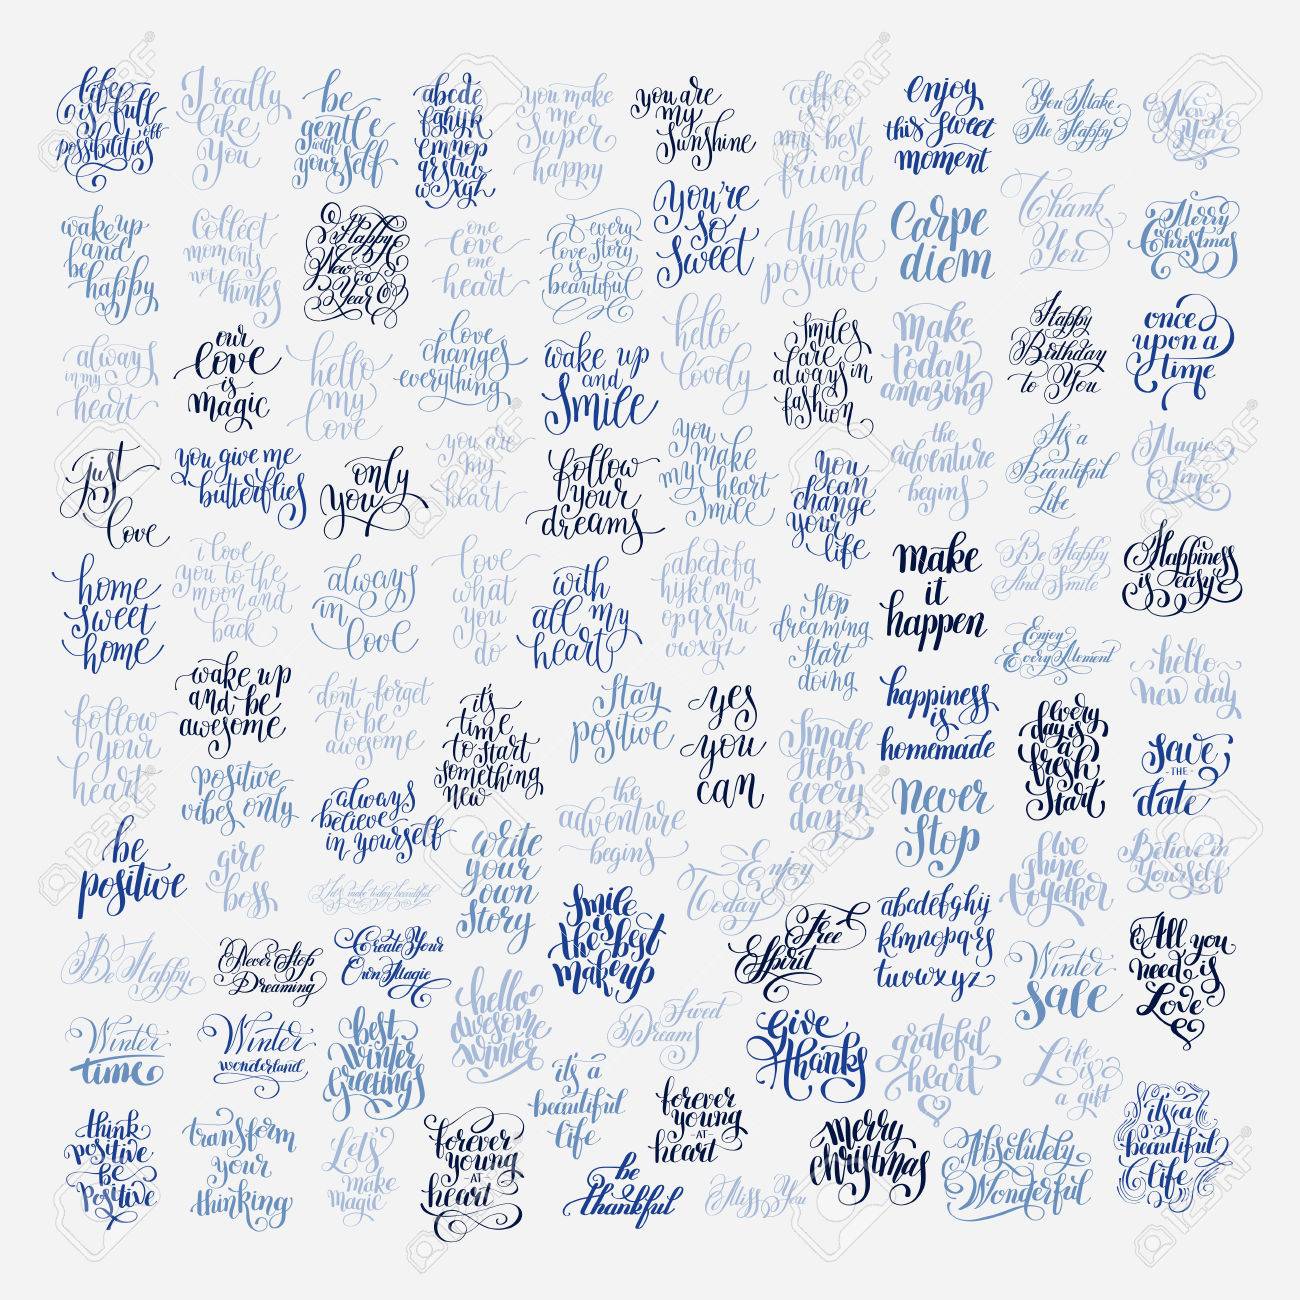 life
is full
off
possibilities
I really
like
you
be
gentle
with
yourself
abcde
fghyk
lmnop
qrstuv
wxyz
you make
me
super
happy
you are
my
sunshine
coffee
is
my best
friend
enjoy
this sweet
moment
You Make
Me Happy
New
Year
wake up
and
be
happy
collect
moments
not
thinks
Happy
New
Year
one
love
one
heart
every
love story
is
beautiful
you're
so
sweet
think
positive
Carpe
diem
Thank
You
Merry
Christmas
always
in my
heart
our
love
is
magic
hello
my
love
love
changes
everything
wake up
and
smile
hello
lovely
smiles
are
always in
fashion
make
today
amazing
Happy
Birthday
to You
once
upon a
time
just
love
you give me
butterflies
only
you
you are
my
heart
follow
your
dreams
you
make
my heart
smile
you
can
change
your
life
the
adventure
begins
It's a
Beautiful
Life
Magic
Time
home
sweet
home
i love
you to the
moon and
back
always
in
love
love
what
you
do
with
all my
heart
abcdefg
hijklmn
opqrstu
vwxyz
stop
dreaming
start
doing
make
it
happen
Be Happy
And Smile
Happiness
is easy
Enjoy
Every Moment
hello
new day
follow
your
heart
wake up
and be
awesome
don't forget
to be
awesome
it's
time
to start
something
new
stay
positive
yes
you
can
small
steps
every
day
happiness
is
homemade
every
day is
a
fresh
start
save
-THE-
date
positive
vibes only
always
believe
in yourself
the
adventure
begins
never
stop
be
positive
girl
boss
Let's make today beautiful
write
your
own
story
smile
is
the best
makeup
Enjoy
Today
Free
Spirit
abcdefghij
klmnopqrs
tuvwxyz
we
shine
together
Believe in
Yourself
Be Happy
Never Stop
Dreaming
Create Your
Own Magic
hello
awesome
winter
Sweet
Dreams
Winter
sale
All you
need is
Love
Winter
time
Winter
wonderland
best
winter
greetings
it's a
beautiful
life
forever
young
AT
heart
Give
thanks
grateful
heart
Life
is
a gift
think
positive
be
positive
transform
your
thinking
Let's
make
magic
forever
young
AT
heart
be
thankful
Miss You
merry
christmas
Absolutely
Wonderful
it's a
beautiful
life
123RF